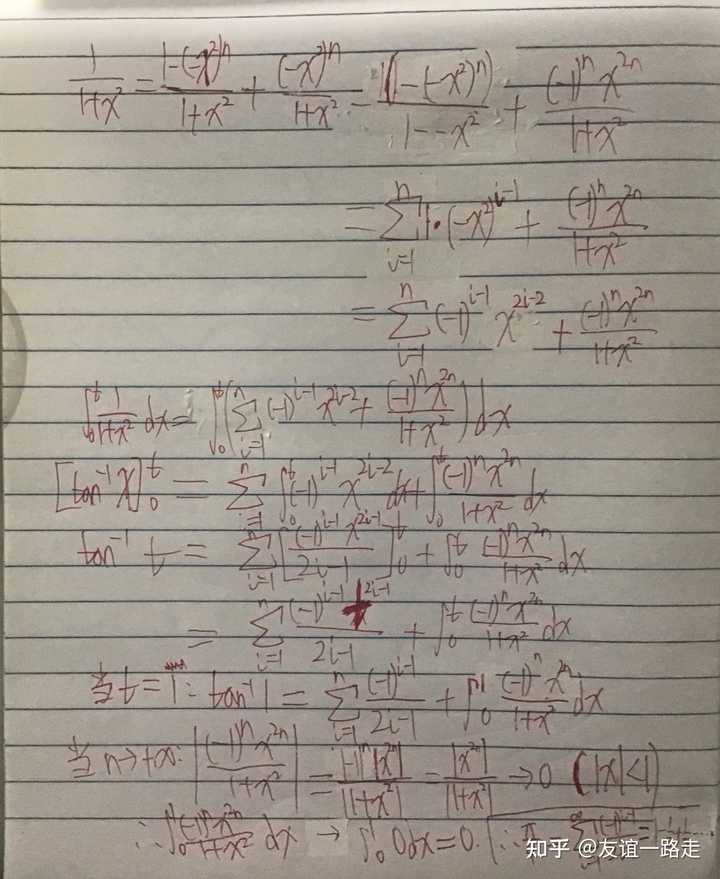 1/(1+x²) = (1-(-x²)ⁿ)/(1+x²) + (-x²)ⁿ/(1+x²) = 1(1-(-x²)ⁿ)/(1--x²) + (-1)ⁿx²ⁿ/(1+x²)
= ∑_{i=1}^{n} 1·(-x²)^{i-1} + (-1)ⁿx²ⁿ/(1+x²)
= ∑_{i=1}^{n} (-1)^{i-1} x^{2i-2} + (-1)ⁿx²ⁿ/(1+x²)
∫₀ᵗ 1/(1+x²) dx = ∫₀ᵗ (∑_{i=1}^{n} (-1)^{i-1} x^{2i-2} + (-1)ⁿx²ⁿ/(1+x²)) dx
[tan⁻¹x]₀ᵗ = ∑_{i=1}^{n} ∫₀ᵗ (-1)^{i-1} x^{2i-2} dx + ∫₀ᵗ (-1)ⁿx²ⁿ/(1+x²) dx
tan⁻¹ t = ∑_{i=1}^{n} [(-1)^{i-1} x^{2i-1}/(2i-1)]₀ᵗ + ∫₀ᵗ (-1)ⁿx²ⁿ/(1+x²) dx
= ∑_{i=1}^{n} (-1)^{i-1} t^{2i-1}/(2i-1) + ∫₀ᵗ (-1)ⁿx²ⁿ/(1+x²) dx
当t=1: tan⁻¹1 = ∑_{i=1}^{n} (-1)^{i-1}/(2i-1) + ∫₀¹ (-1)ⁿx²ⁿ/(1+x²) dx
当n→+∞: |(-1)ⁿx²ⁿ/(1+x²)| = |-1|ⁿ|x²ⁿ|/|1+x²| = |x²ⁿ|/|1+x²| → 0 (|x|<1)
∴∫₀¹ (-1)ⁿx²ⁿ/(1+x²) dx → ∫₀¹ 0dx = 0.
知乎 @友谊一路走